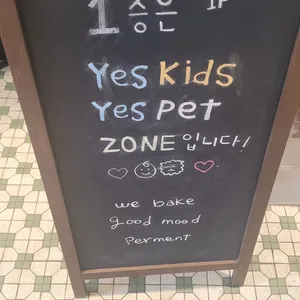 1층은 1F
Yes Kids
Yes Pet
ZONE 입니다!
we bake
good mood
Perment